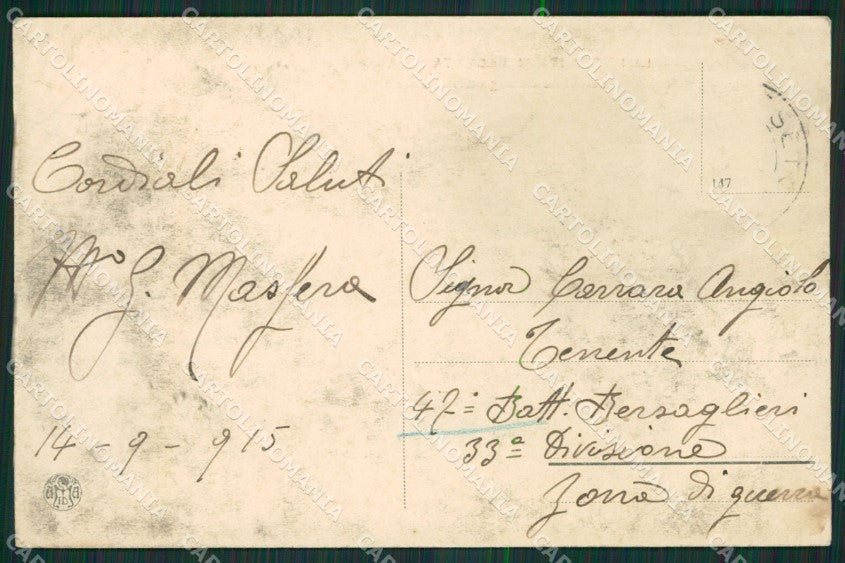 Cordiali Saluti
G. Massera
14-9-915
147
Signor Carrara Angiolo
Tenente
47° Batt. Bersaglieri
33a Divisione
Zona di guerra
CARTOLINOMANIA